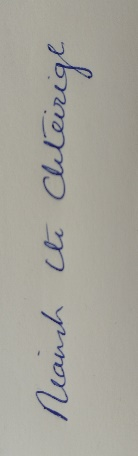 Niamh Uí Chléirige